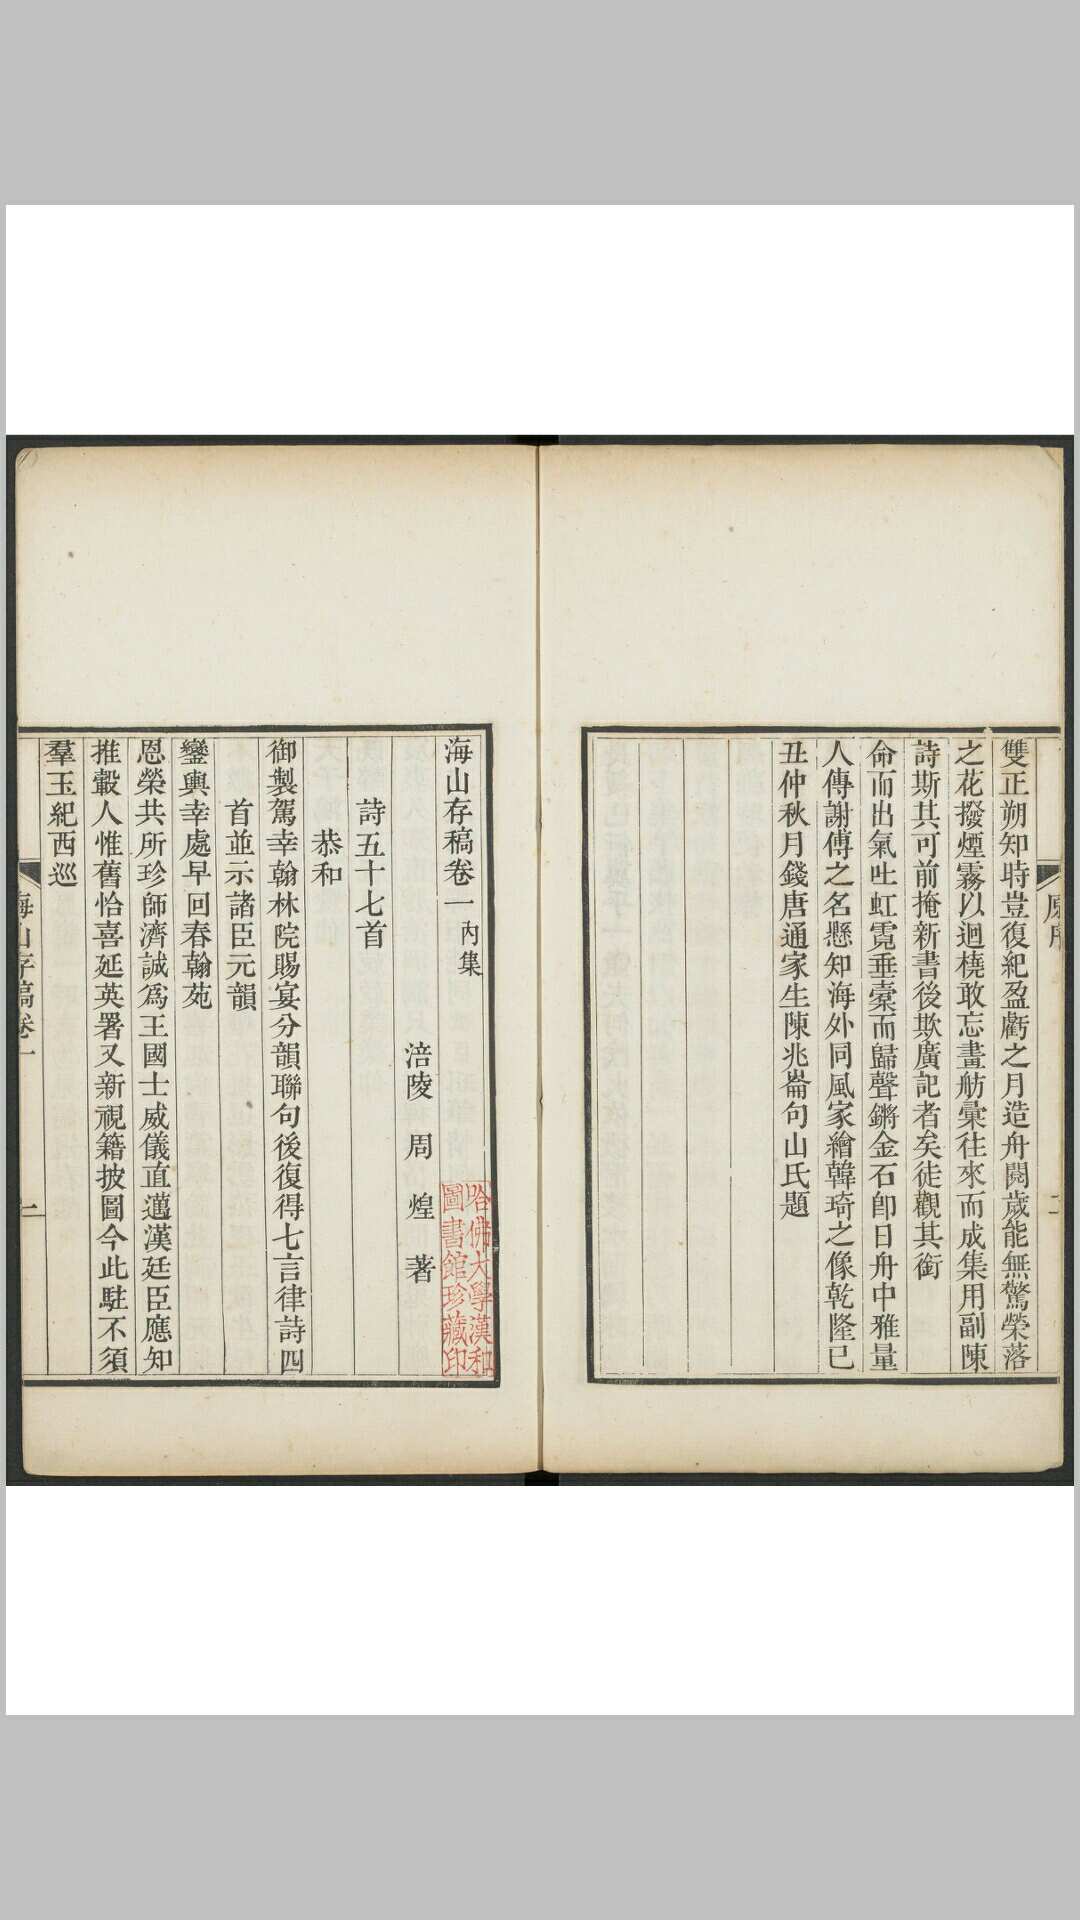 原序
二
雙正朔知時豈復紀盈虧之月造舟閱歲能無驚榮落
之花撥煙霧以迴橈敢忘畫舫彙往來而成集用副陳
詩斯其可前掩新書後欺廣記者矣徒觀其銜
命而出氣吐虹霓垂橐而歸聲鏘金石即日舟中雅量
人傳謝傅之名懸知海外同風家繪韓琦之像乾隆已
丑仲秋月錢唐通家生陳兆崙句山氏題
海山存稿卷一 內集
涪陵 周 煌 著
哈佛大學漢和
圖書館珍藏印
詩五十七首
恭和
御製駕幸翰林院賜宴分韻聯句後復得七言律詩四
首並示諸臣元韻
鑾輿幸處早回春翰苑
恩榮共所珍師濟誠為王國士威儀直邁漢廷臣應知
推轂人惟舊恰喜延英署又新視籍披圖今此駐不須
羣玉紀西巡
海山存稿卷一
一